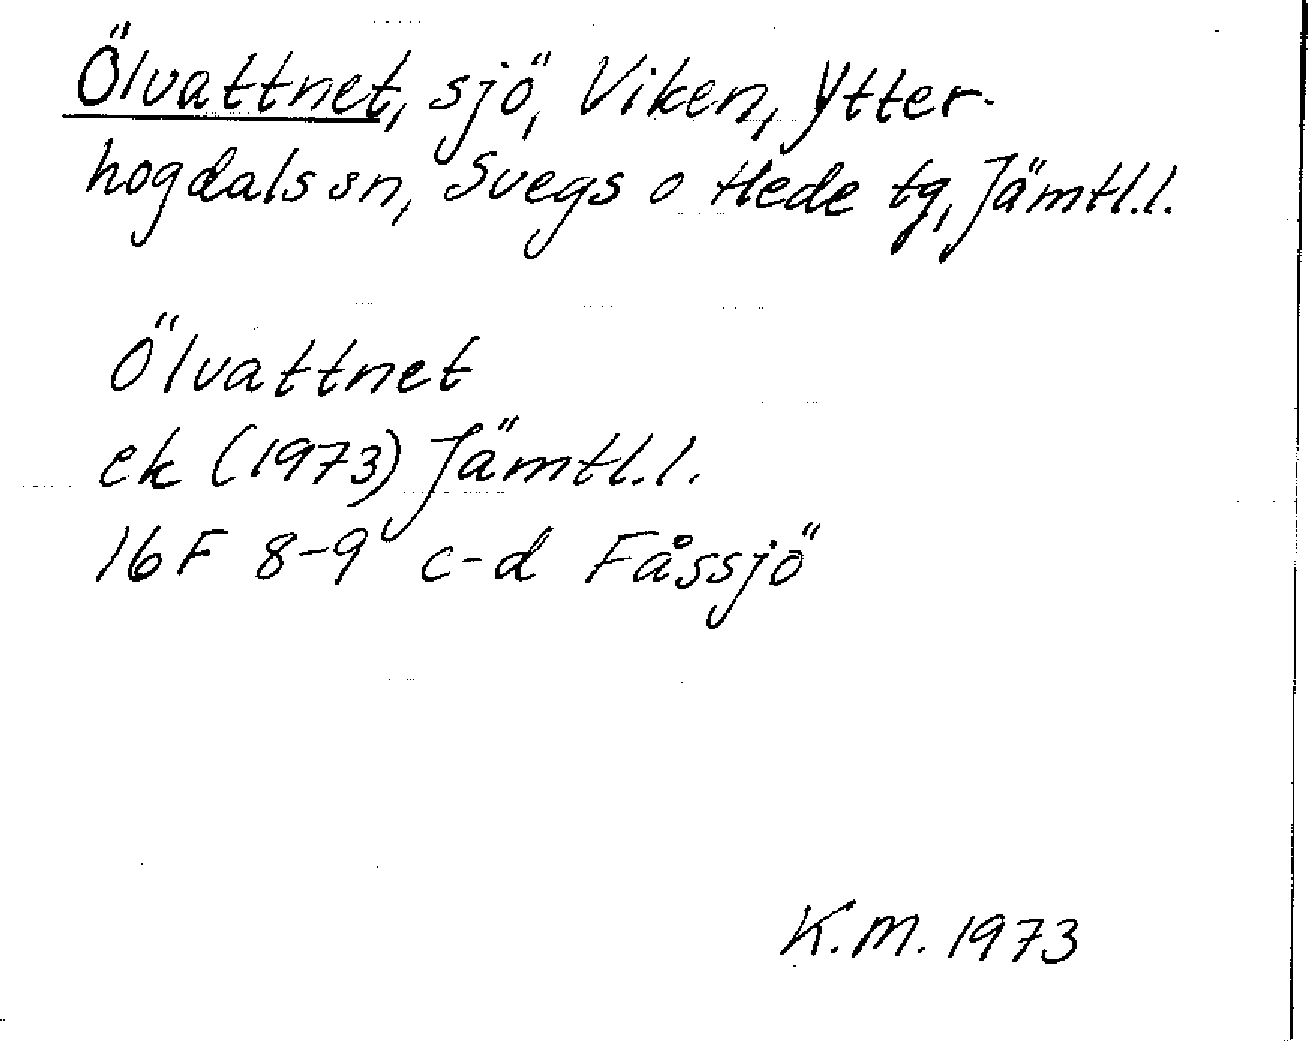 Ölvattnet, sjö, Viken, Ytter-
hogdals sn, Svegs o Hede tg, Jämtl.l.
Ölvattnet
ek (1973) Jämtl.l.
16F 8-9 c-d Fåssjö
K.M. 1973